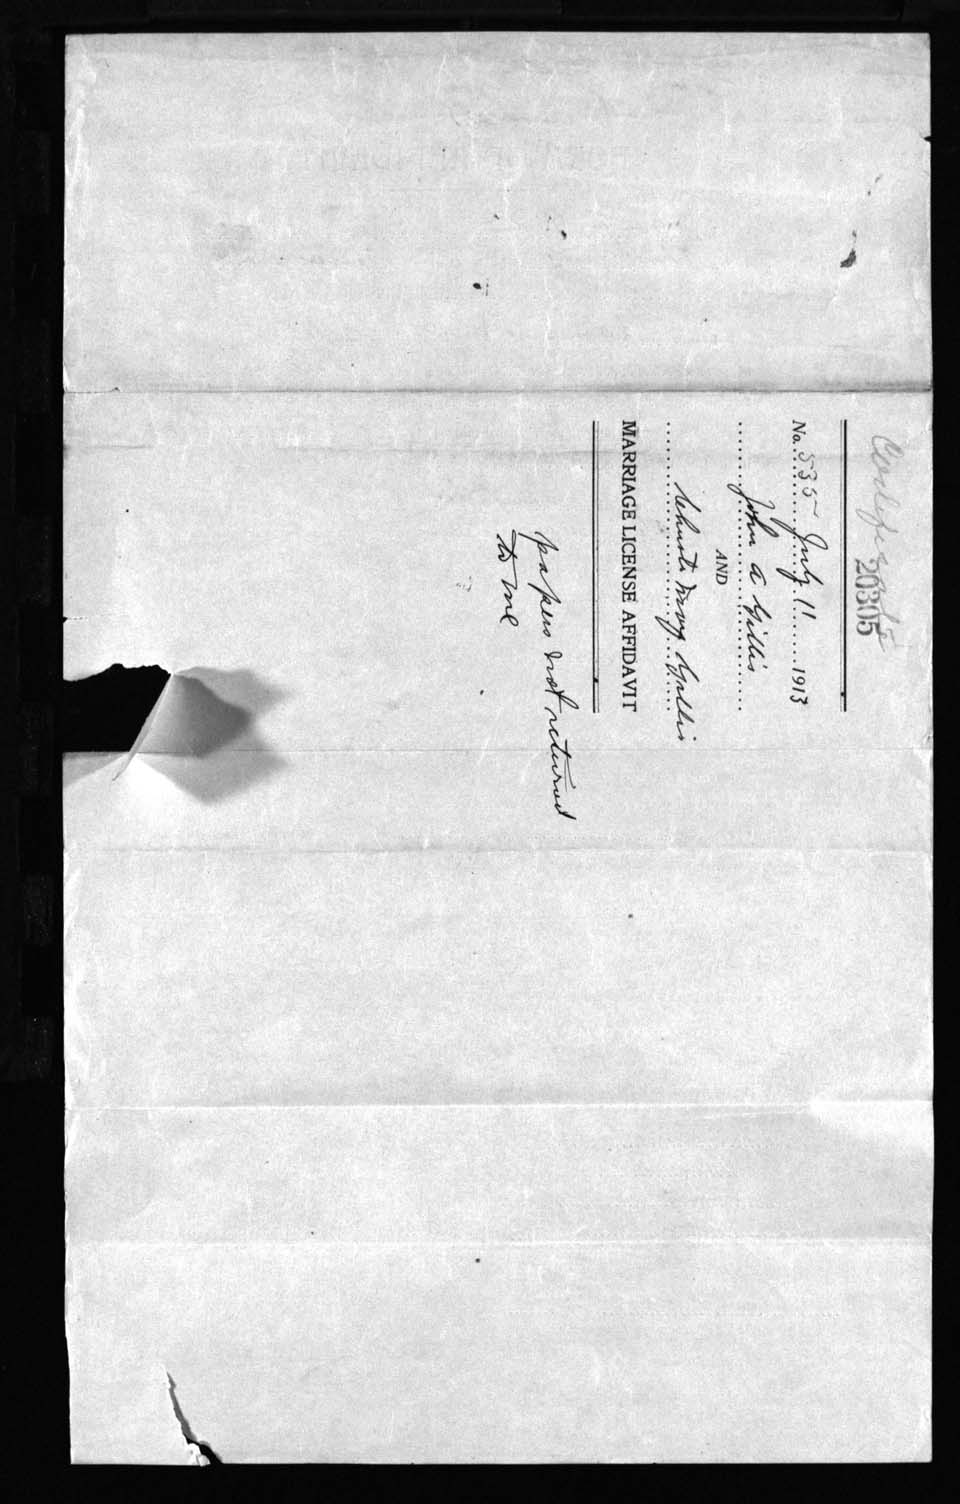 Certificate
20305
No. 535 July 11 1913
John A Gillis
AND
Gillis
MARRIAGE LICENSE AFFIDAVIT
papers not returned
to me